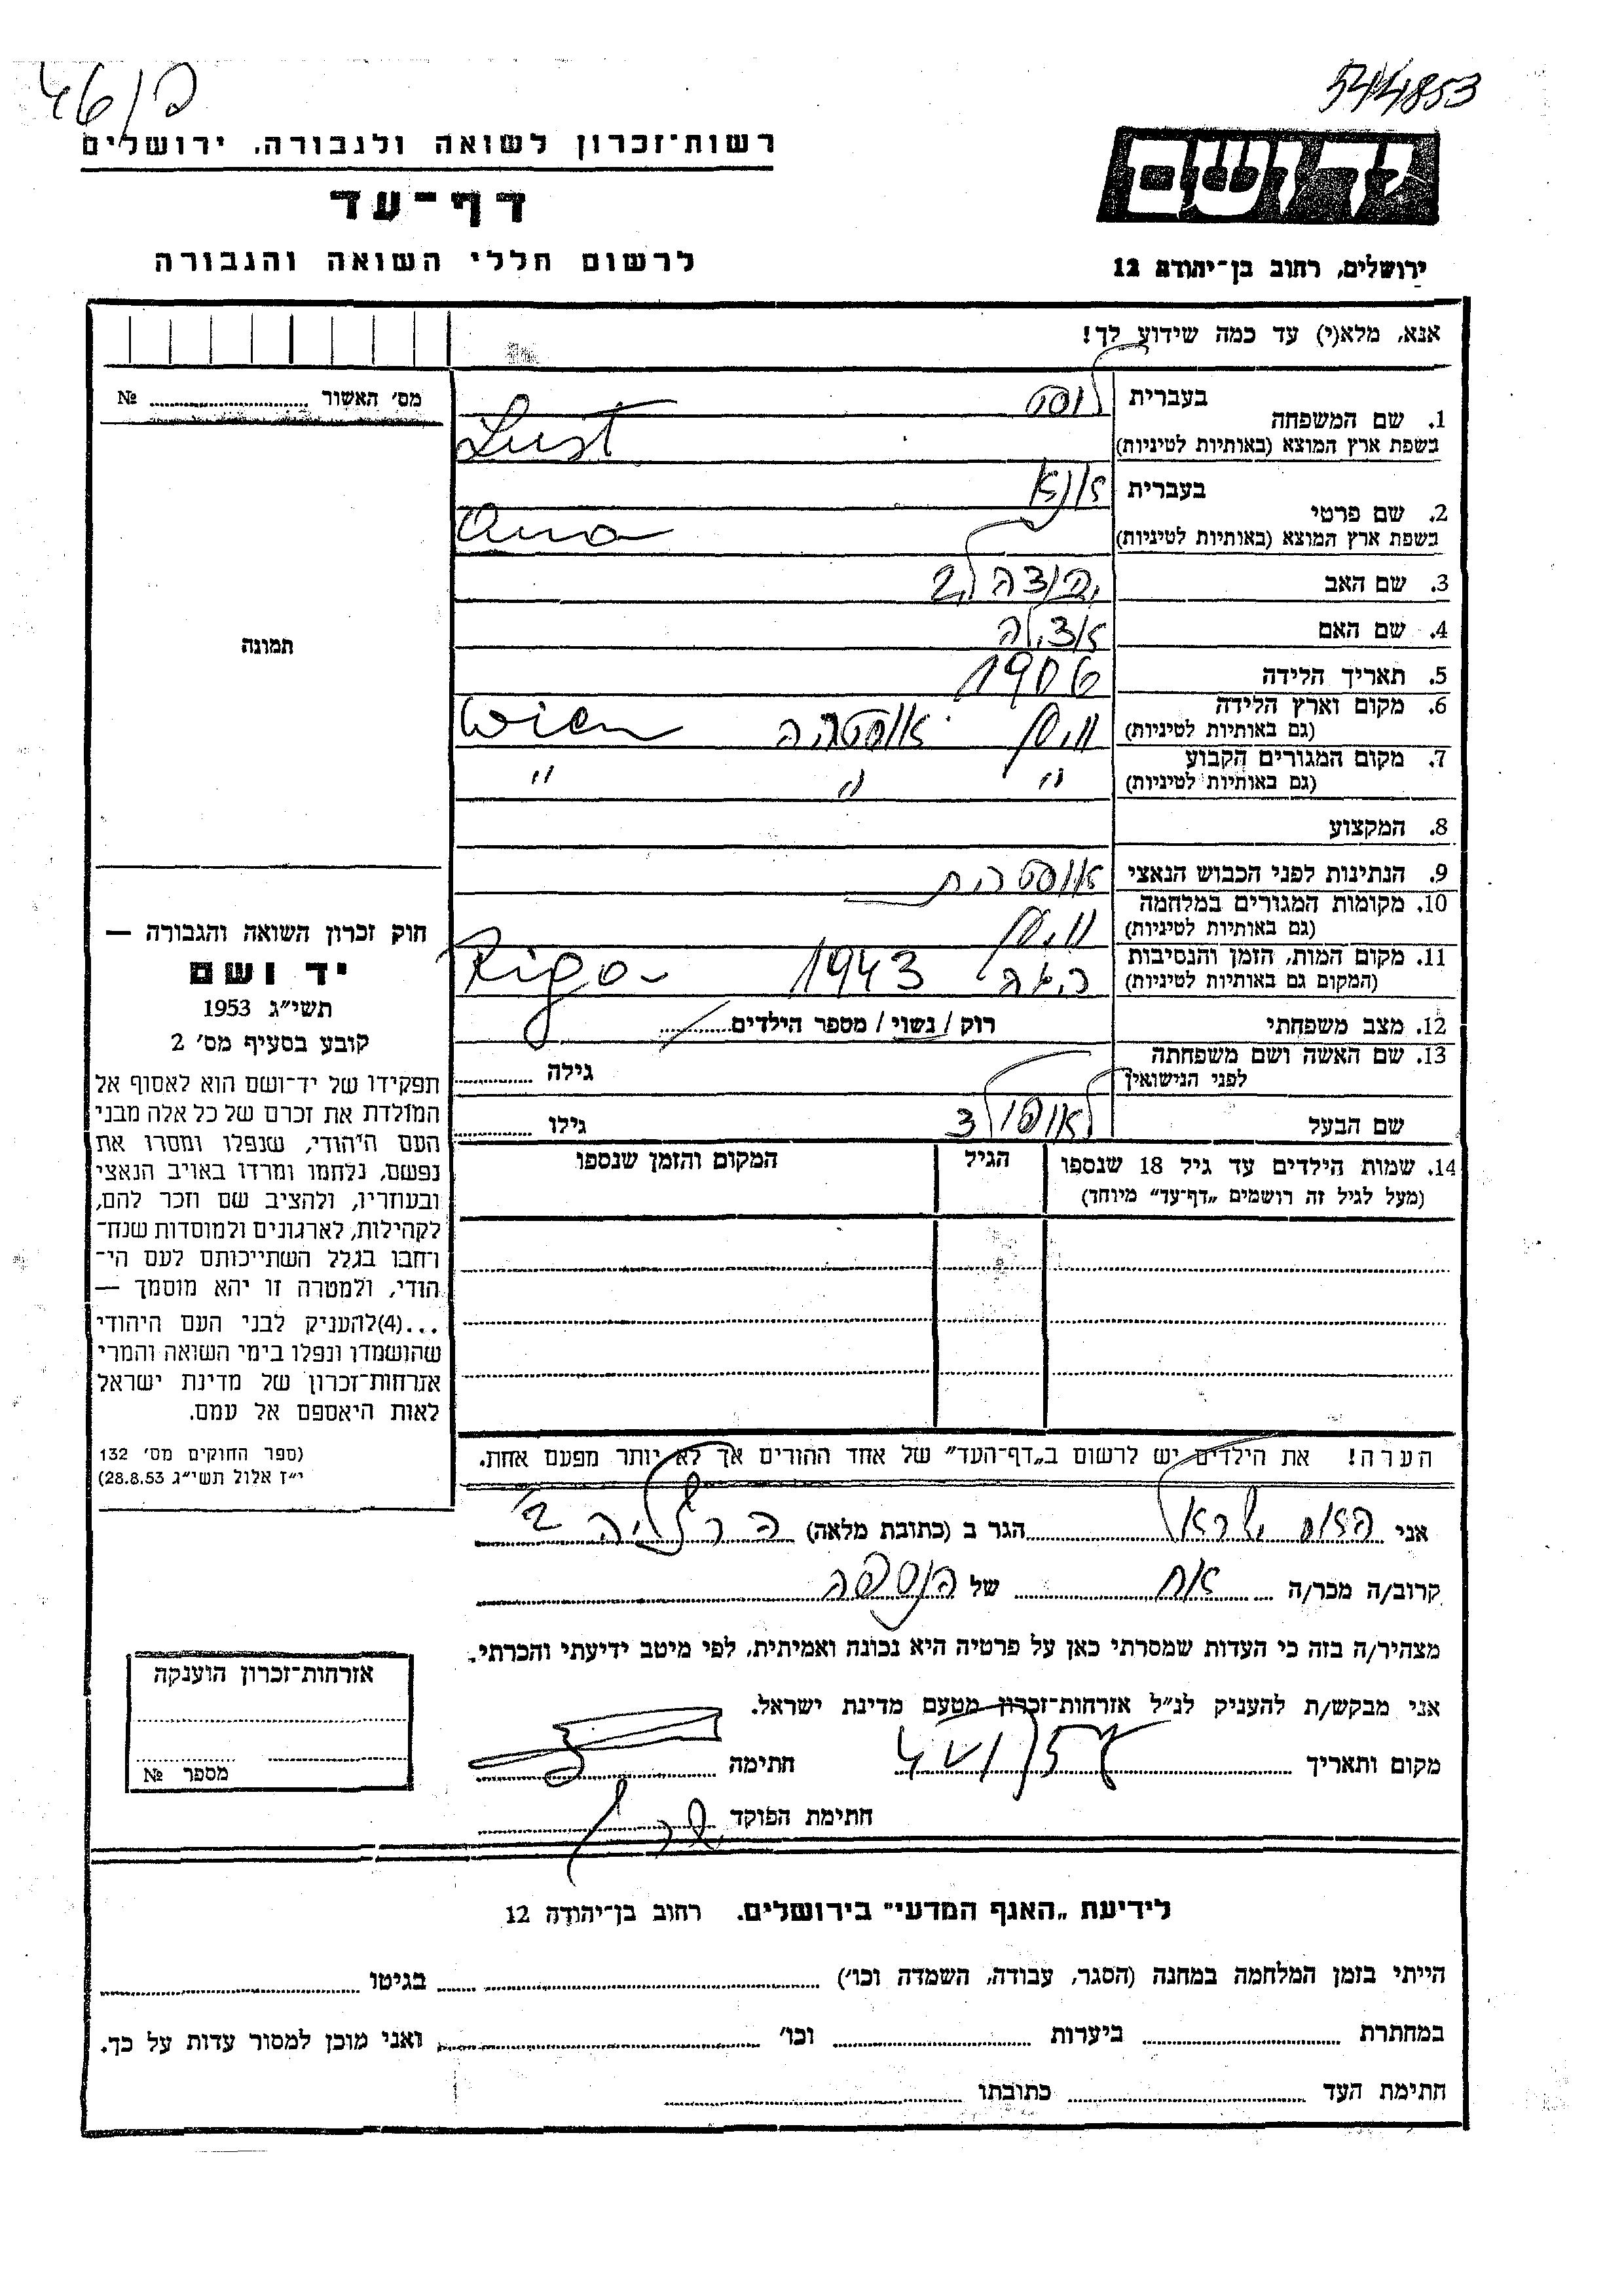 544853
46/פ
יד ושם
רשות־זכרון לשואה ולגבורה, ירושלים
דף־עד
לרשום חללי השואה והגבורה
ירושלים, רחוב בן־יהודה 12
אנא, מלא(י) עד כמה שידוע לך!
בעברית לוסט
1. שם המשפחה
בשפת ארץ המוצא (באותיות לטיניות) Lust
בעברית אנא
2. שם פרטי
בשפת ארץ המוצא (באותיות לטיניות) Ana
3. שם האב
4. שם האם
5. תאריך הלידה 1906
6. מקום וארץ הלידה
(גם באותיות לטיניות) וינן אוסטריה Wien
7. מקום המגורים הקבוע
(גם באותיות לטיניות) " " "
8. המקצוע
9. הנתינות לפני הכבוש הנאצי אוסטרית
10. מקומות המגורים במלחמה
(גם באותיות לטיניות) וינן
11. מקום המות, הזמן והנסיבות
(המקום גם באותיות לטיניות) ריגא 1943 Riga
12. מצב משפחתי רווק / נשוי / מספר הילדים
13. שם האשה ושם משפחתה
לפני הנישואין גילה
שם הבעל גילו
14. שמות הילדים עד גיל 18 שנספו הגיל המקום והזמן שנספו
(מעל לגיל זה רושמים „דף־עד" מיוחד)
הערה! את הילדים יש לרשום ב„דף־העד" של אחד ההורים אך לא יותר מפעם אחת.
מס' האשור №
תמונה
חוק זכרון השואה והגבורה —
יד ושם
תשי"ג 1953
קובע בסעיף מס' 2
תפקידו של יד־ושם הוא לאסוף אל
המולדת את זכרם של כל אלה מבני
העם היהודי, שנפלו ומסרו את
נפשם, נלחמו ומרדו באויב הנאצי
ובעוזריו, ולהציב שם וזכר להם,
לקהילות, לארגונים ולמוסדות שנח־
רבו בגלל השתייכותם לעם הי־
הודי, ולמטרה זו יהא מוסמך —
...(4)להעניק לבני העם היהודי
שהושמדו ונפלו בימי השואה והמרי
אזרחות־זכרון של מדינת ישראל
לאות היאספם אל עמם.
(ספר החוקים מס' 132
י"ז אלול תשי"ג 28.8.53)
אני ישראל הגר ב (כתובת מלאה) הרצליה ב'
קרוב/ה מכר/ה אח של הנספה
מצהיר/ה בזה כי העדות שמסרתי כאן על פרטיה היא נכונה ואמיתית, לפי מיטב ידיעתי והכרתי.
אני מבקש/ת להעניק לנ"ל אזרחות־זכרון מטעם מדינת ישראל.
מקום ותאריך חתימה
חתימת הפוקד
אזרחות־זכרון הוענקה
מספר №
לידיעת „האגף המדעי" בירושלים. רחוב בן־יהודה 12
הייתי בזמן המלחמה במחנה (הסגר, עבודה, השמדה וכו') בגיטו
במחתרת ביערות וכו' ואני מוכן למסור עדות על כך.
חתימת העד כתובתו